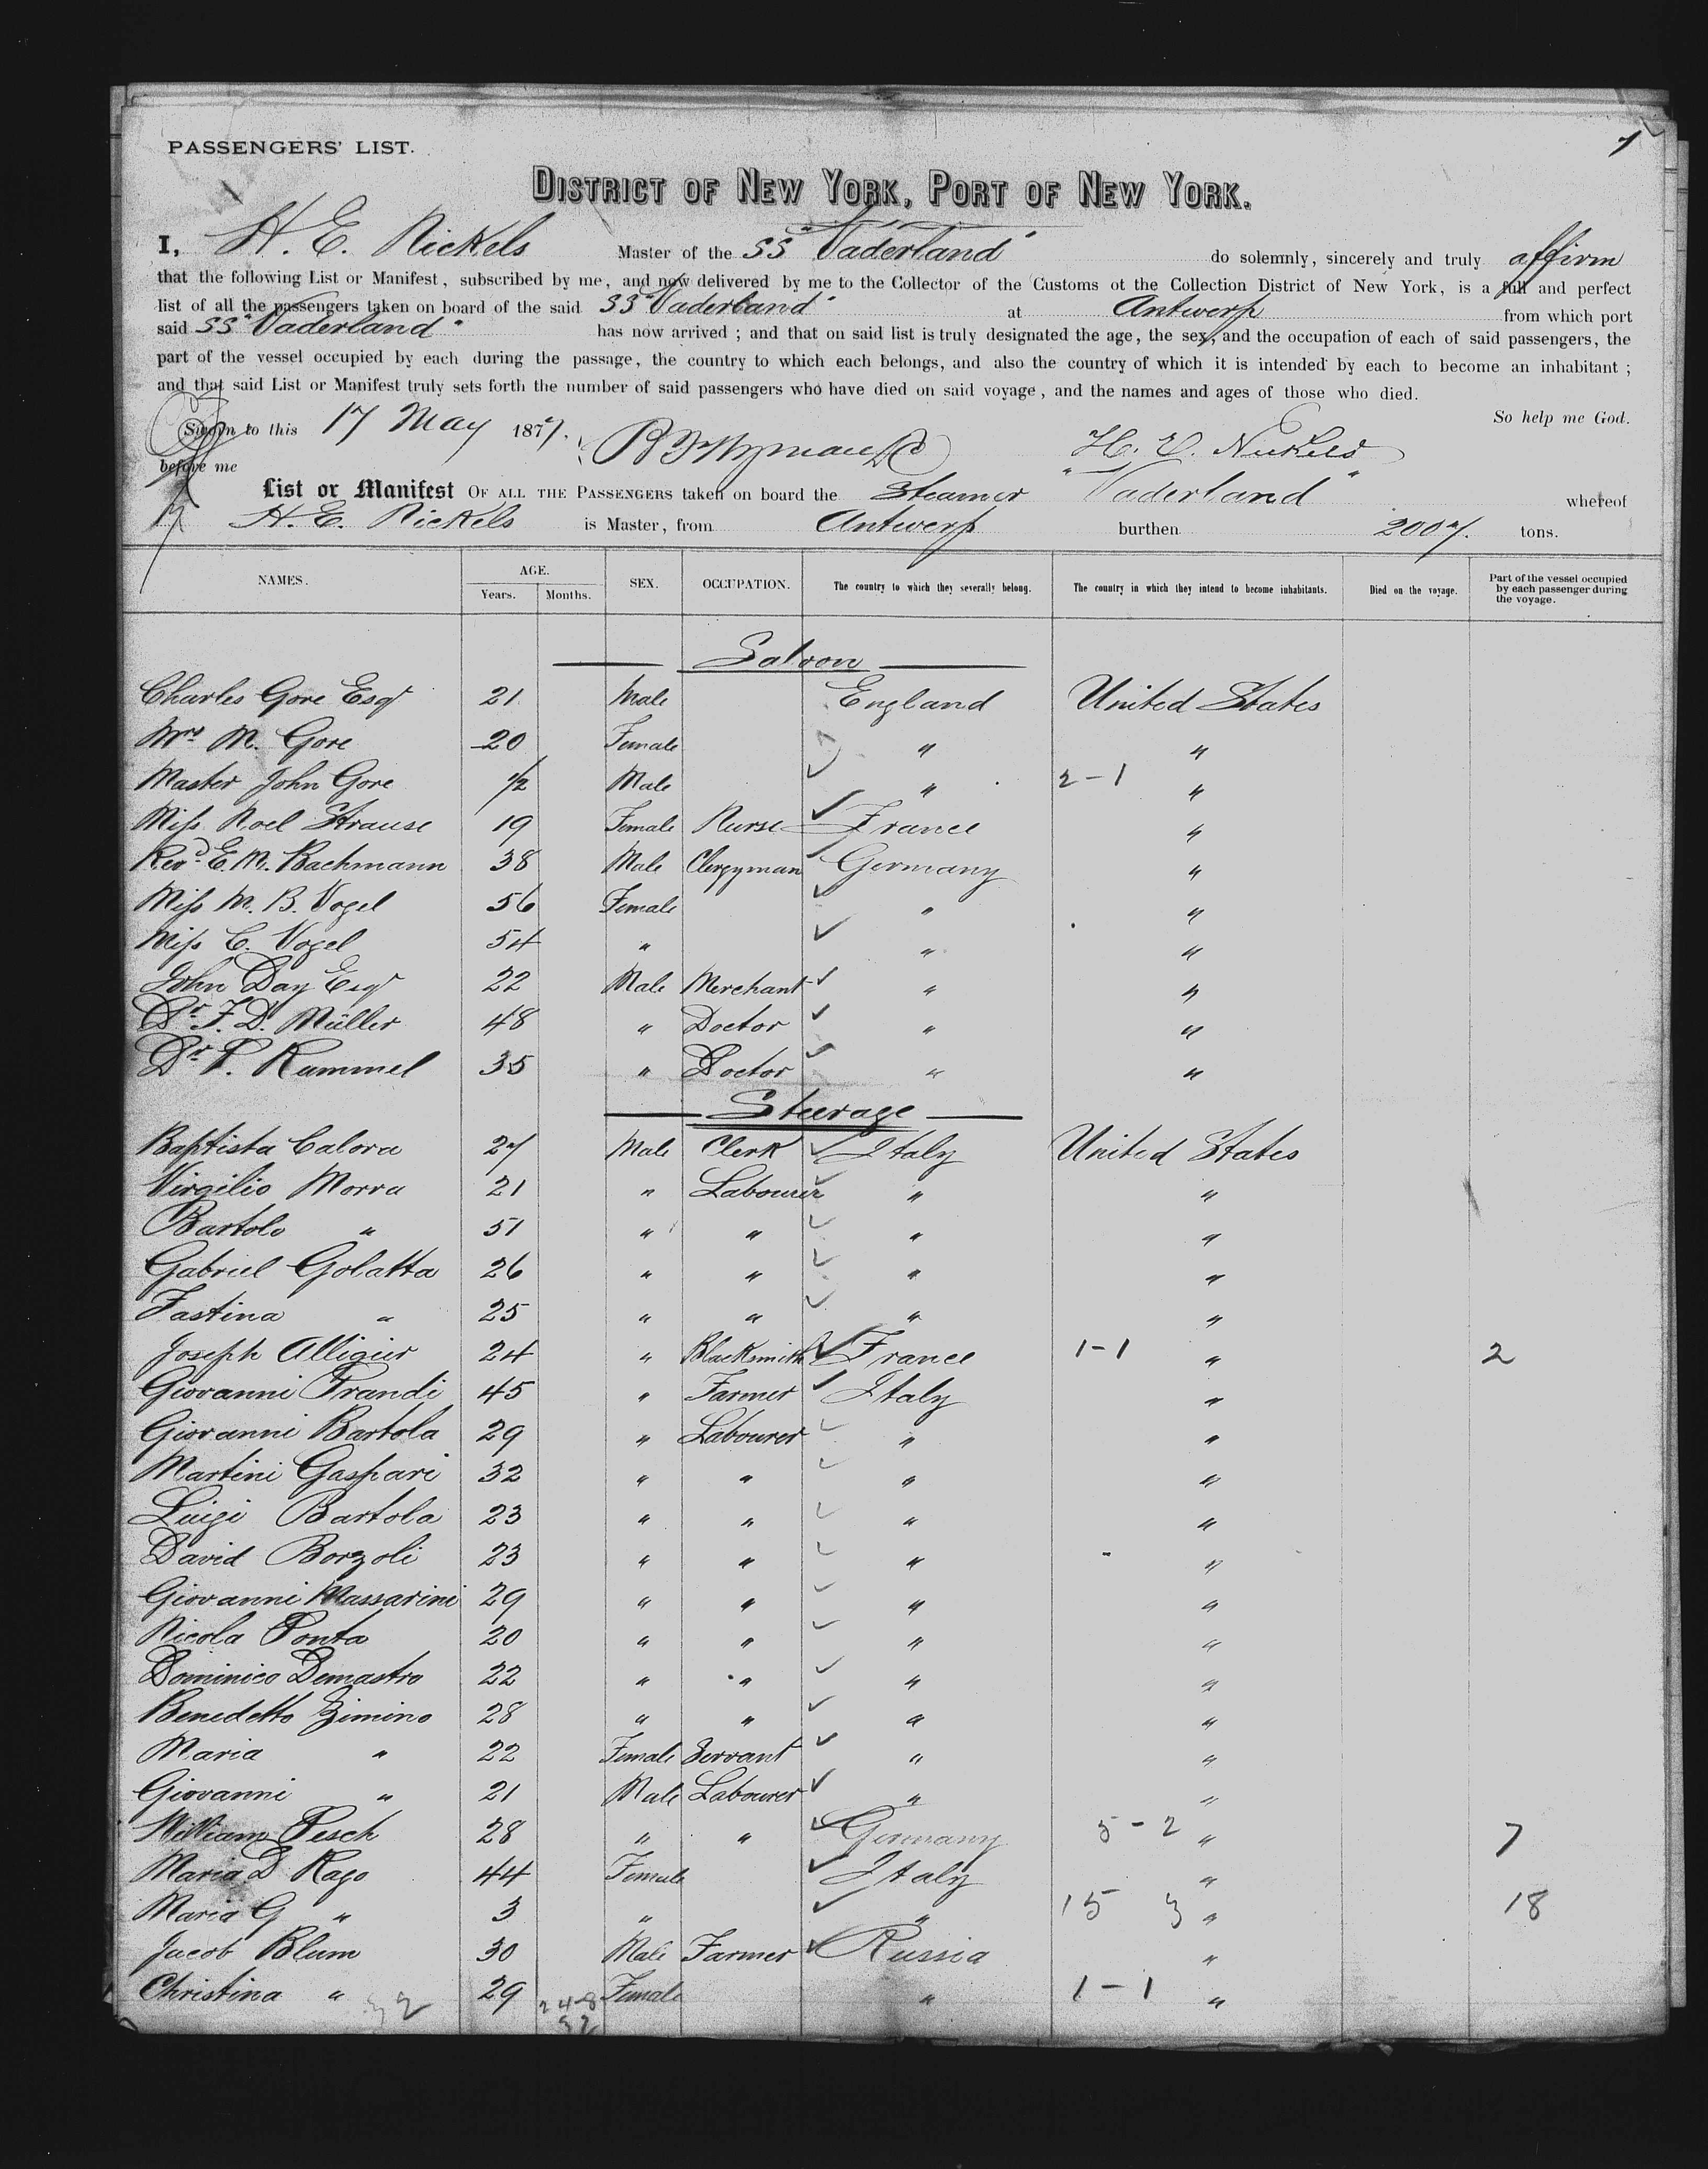 PASSENGERS' LIST.
DISTRICT OF NEW YORK, PORT OF NEW YORK.
I, H. E. Nickels Master of the SS "Vaderland" do solemnly, sincerely and truly affirm
that the following List or Manifest, subscribed by me, and now delivered by me to the Collector of the Customs ot the Collection District of New York, is a full and perfect
list of all the passengers taken on board of the said SS "Vaderland" at Antwerp from which port
said SS "Vaderland" has now arrived; and that on said list is truly designated the age, the sex, and the occupation of each of said passengers, the
part of the vessel occupied by each during the passage, the country to which each belongs, and also the country of which it is intended by each to become an inhabitant;
and that said List or Manifest truly sets forth the number of said passengers who have died on said voyage, and the names and ages of those who died.
So help me God.
Sworn to this 17 May 1877. H. E. Nickels
before me
List or Manifest OF ALL THE PASSENGERS taken on board the Steamer "Vaderland" whereof
H. E. Nickels is Master, from Antwerp burthen 2007. tons.
NAMES. AGE. Years. Months. SEX. OCCUPATION. The country to which they severally belong. The country in which they intend to become inhabitants. Died on the voyage. Part of the vessel occupied by each passenger during the voyage.
Saloon
Charles Gore Esqr 21 Male England United States
Mrs M. Gore 20 Female " "
Master John Gore 1/2 Male " 2-1 "
Miss Noel Strause 19 Female Nurse France "
Revd E. M. Bachmann 38 Male Clergyman Germany "
Miss M. B. Vogel 56 Female " "
Miss C. Vogel 54 " " "
John Day Esqr 22 Male Merchant " "
Dr F. D. Müller 48 " Doctor " "
Dr P. Kummel 35 " Doctor " "
Steerage
Baptista Calora 27 Male Clerk Italy United States
Virgilio Morra 21 " Labourer " "
Bartolo " 51 " " " "
Gabriel Golatta 26 " " " "
Fastina " 25 " " " "
Joseph Alligier 24 " Blacksmith France 1-1 " 2
Giovanni Prandi 45 " Farmer Italy "
Giovanni Bartola 29 " Labourer " "
Martini Gaspari 32 " " " "
Luigi Bartola 23 " " " "
David Borzoli 23 " " " "
Giovanni Massarini 29 " " " "
Nicola Ponta 20 " " " "
Dominico Demastro 22 " " " "
Benedetto Zimino 28 " " " "
Maria " 22 Female Servant " "
Giovanni " 21 Male Labourer " "
William Pesch 28 " " Germany 5-2 " 7
Maria D Rago 44 Female Italy "
Maria G " 3 " " 15 3 " 18
Jacob Blum 30 Male Farmer Russia "
Christina " 29 Female " 1-1 "